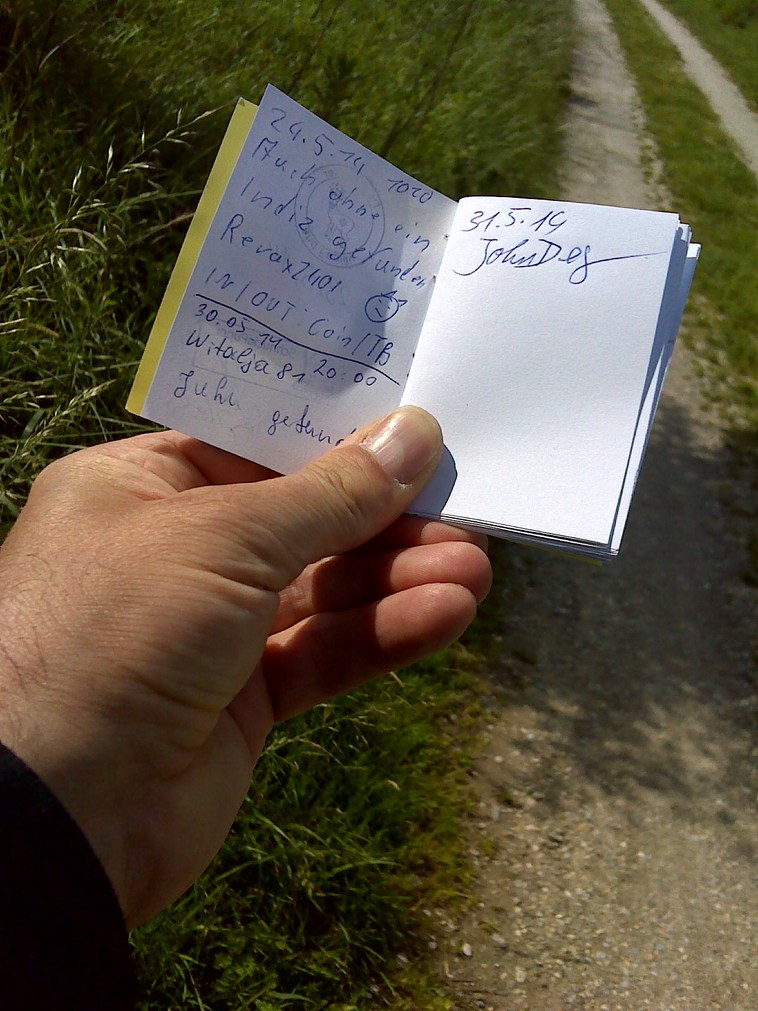 24.5.14 1020
Auch ohne ein
Indiz gefunden
Revox2401
IN/OUT: Coin/TB
30.05.14 20:00
Witalja81
Juhu gefund
31.5.14
JohnDeg